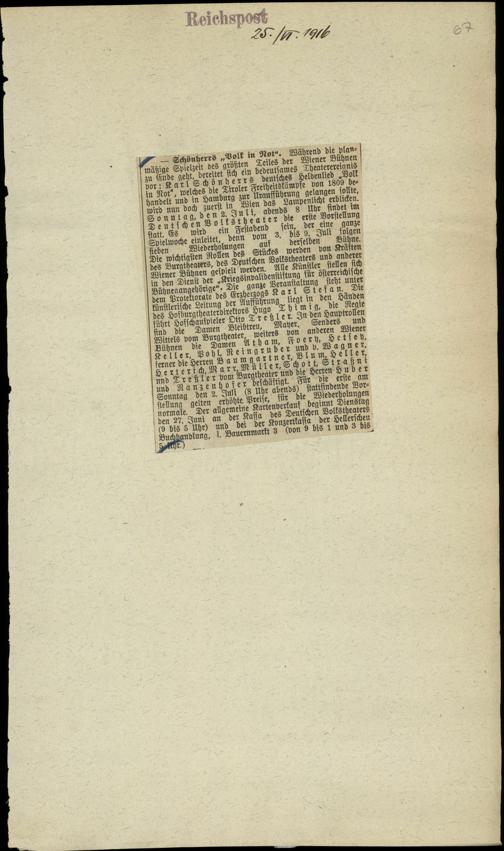 Reichspost
25./VI. 1916
67
— Schönherrs „Volk in Not“. Während die plan-
mäßige Spielzeit des größten Teiles der Wiener Bühnen
zu Ende geht, bereitet sich ein bedeutsames Theaterereignis
vor: Karl Schönherrs deutsches Heldenlied „Volk
in Not“, welches die Tiroler Freiheitskämpfe von 1809 be-
handelt und in Hamburg zur Uraufführung gelangen sollte,
wird nun doch zuerst in Wien das Lampenlicht erblicken.
Sonntag, den 2. Juli, abends 8 Uhr findet im
Deutschen Volkstheater die erste Vorstellung
statt. Es wird ein Festabend sein, der eine ganze
Spielwoche einleitet, denn vom 3. bis 9. Juli folgen
sieben Wiederholungen auf derselben Bühne.
Die wichtigsten Rollen des Stückes werden von Kräften
des Burgtheaters, des Deutschen Volkstheaters und anderer
Wiener Bühnen gespielt werden. Alle Künstler stellen sich
in den Dienst der „Kriegsinvalidenstiftung für österreichische
Bühnenangehörige“. Die ganze Veranstaltung steht unter
dem Protektorate des Erzherzogs Karl Stefan. Die
künstlerische Leitung der Aufführung liegt in den Händen
des Hofburgtheaterdirektors Hugo Thimig, die Regie
führt Hofschauspieler Otto Treßler. In den Hauptrollen
sind die Damen Bleibtreu, Mayer, Senders und
Wittels vom Burgtheater, weiters von anderen Wiener
Bühnen die Damen Atham, Foery, Hetsey,
Keller, Pohl, Reingruber und v. Wagner,
ferner die Herren Baumgartner, Blum, Heller,
Herterich, Marr, Müller, Schott, Straßni
und Treßler vom Burgtheater und die Herren Huber
und Ranzenhofer beschäftigt. Für die erste am
Sonntag den 2. Juli (8 Uhr abends) stattfindende Vor-
stellung gelten erhöhte Preise, für die Wiederholungen
normale. Der allgemeine Kartenverkauf beginnt Dienstag
den 27. Juni an der Kassa des Deutschen Volkstheaters
(9 bis 5 Uhr) und bei der Konzertkassa der Hellerschen
Buchhandlung, I. Bauernmarkt 3 (von 9 bis 1 und 3 bis
5 Uhr.)